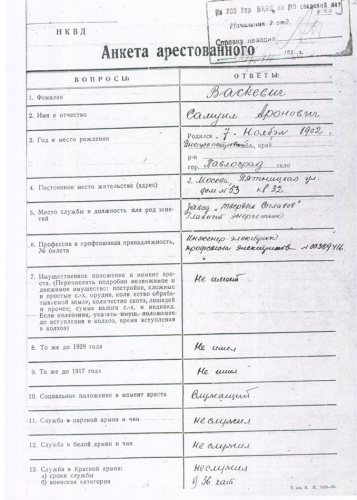 НКВД
Начальник 2 отд.
Справку наводил
193 г.
Анкета арестованного
ВОПРОСЫ:
ОТВЕТЫ:
1. Фамилия
Васкевич
2. Имя и отчество
Самуил Аронович
3. Год и место рождения
Родился „7" Ноября 1902 г.
обл., край
р-н
гор. Павлоград село
4. Постоянное место жительства (адрес)
г. Москва Пятницкая ул.
дом №53 кв 32.
5. Место службы и должность или род занятий
завод „Твердых Сплавов"
Главный энергетик
6. Профессия и профсоюзная принадлежность, № билета
Инженер-электрик
7. Имущественное положение в момент ареста. (Перечислить подробно недвижимое и движимое имущество: постройки, сложные и простые с.-х. орудия, количество обрабатываемой земли, количество скота, лошадей и прочее; сумма налога с.-х. и индивид. Если колхозник, указать имущ. положение до вступления в колхоз, время вступления в колхоз)
Не имеет
8. То же до 1929 года
Не имел
9. То же до 1917 года
Не имел
10. Социальное положение в момент ареста
Служащий
11. Служба в царской армии и чин
Не служил
12. Служба в белой армии и чин
Не служил
13. Служба в Красной армии:
а) сроки службы
б) воинская категория
Не служил